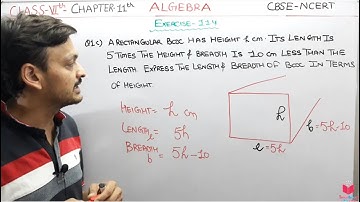 CLASS-VIth CHAPTER-11th ALGEBRA CBSE-NCERT
EXERCISE-11.4
Q1c) A RECTANGULAR BOX HAS HEIGHT h cm. ITS LENGTH IS
5 TIMES THE HEIGHT & BREADTH IS 10 cm LESS THAN THE
LENGTH. EXPRESS THE LENGTH & BREADTH OF BOX IN TERMS
OF HEIGHT.
HEIGHT = h cm
LENGTH = 5h
l
BREADTH = 5h-10
b
h
b=5h-10
l=5h